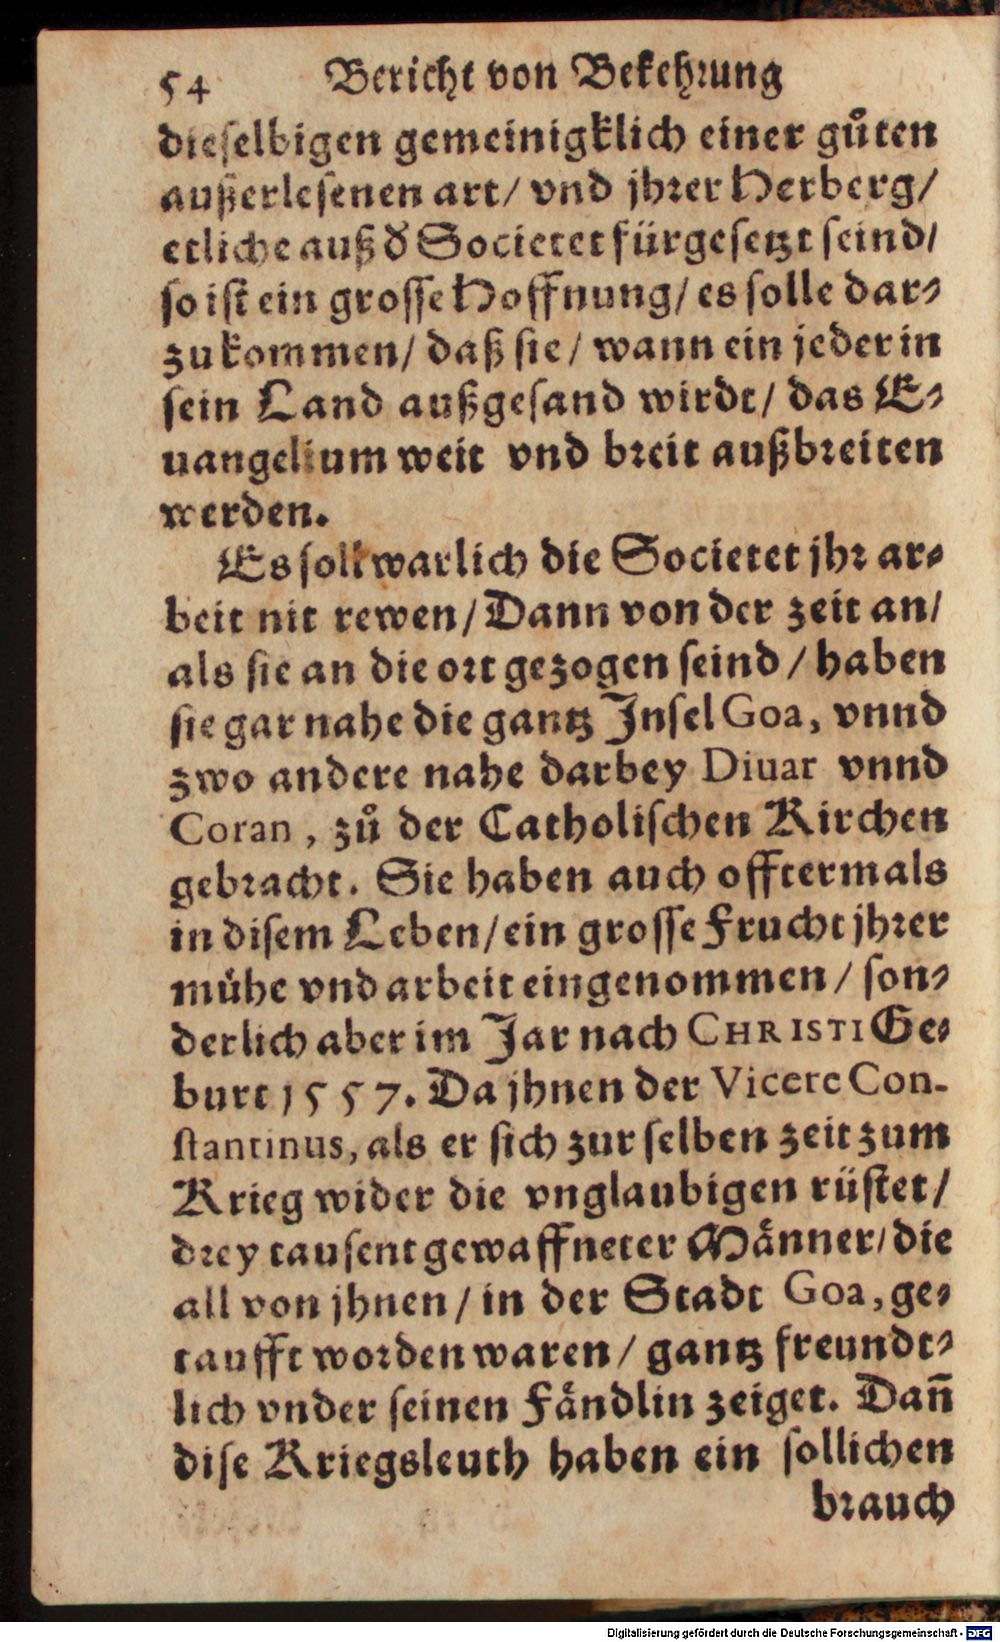 54 Bericht von Bekehrung
dieselbigen gemeinigklich einer gůten
außerlesenen art/ vnd jhrer Herberg/
etliche auß d̕ Societet fürgesetzt seind/
so ist ein grosse Hoffnung/ es solle dar-
zu kommen/ daß sie/ wann ein jeder in
sein Land außgesand wirdt/ das E-
uangelium weit vnd breit außbreiten
werden.
Es soll warlich die Societet jhr ar-
beit nit rewen/ Dann von der zeit an/
als sie an die ort gezogen seind/ haben
sie gar nahe die gantz Jnsel Goa, vnnd
zwo andere nahe darbey Diuar vnnd
Coran, zů der Catholischen Kirchen
gebracht. Sie haben auch offtermals
in disem Leben/ ein grosse Frucht jhrer
mühe vnd arbeit eingenommen/ son-
derlich aber im Jar nach CHRISTI Ge-
burt 1557. Da jhnen der Vicere Con-
stantinus, als er sich zur selben zeit zum
Krieg wider die vnglaubigen rüstet/
drey tausent gewaffneter Männer/ die
all von jhnen/ in der Stadt Goa, ge-
taufft worden waren/ gantz freundt-
lich vnder seinen Fändlin zeiget. Dan̄
dise Kriegsleuth haben ein sollichen
brauch
Digitalisierung gefördert durch die Deutsche Forschungsgemeinschaft - DFG